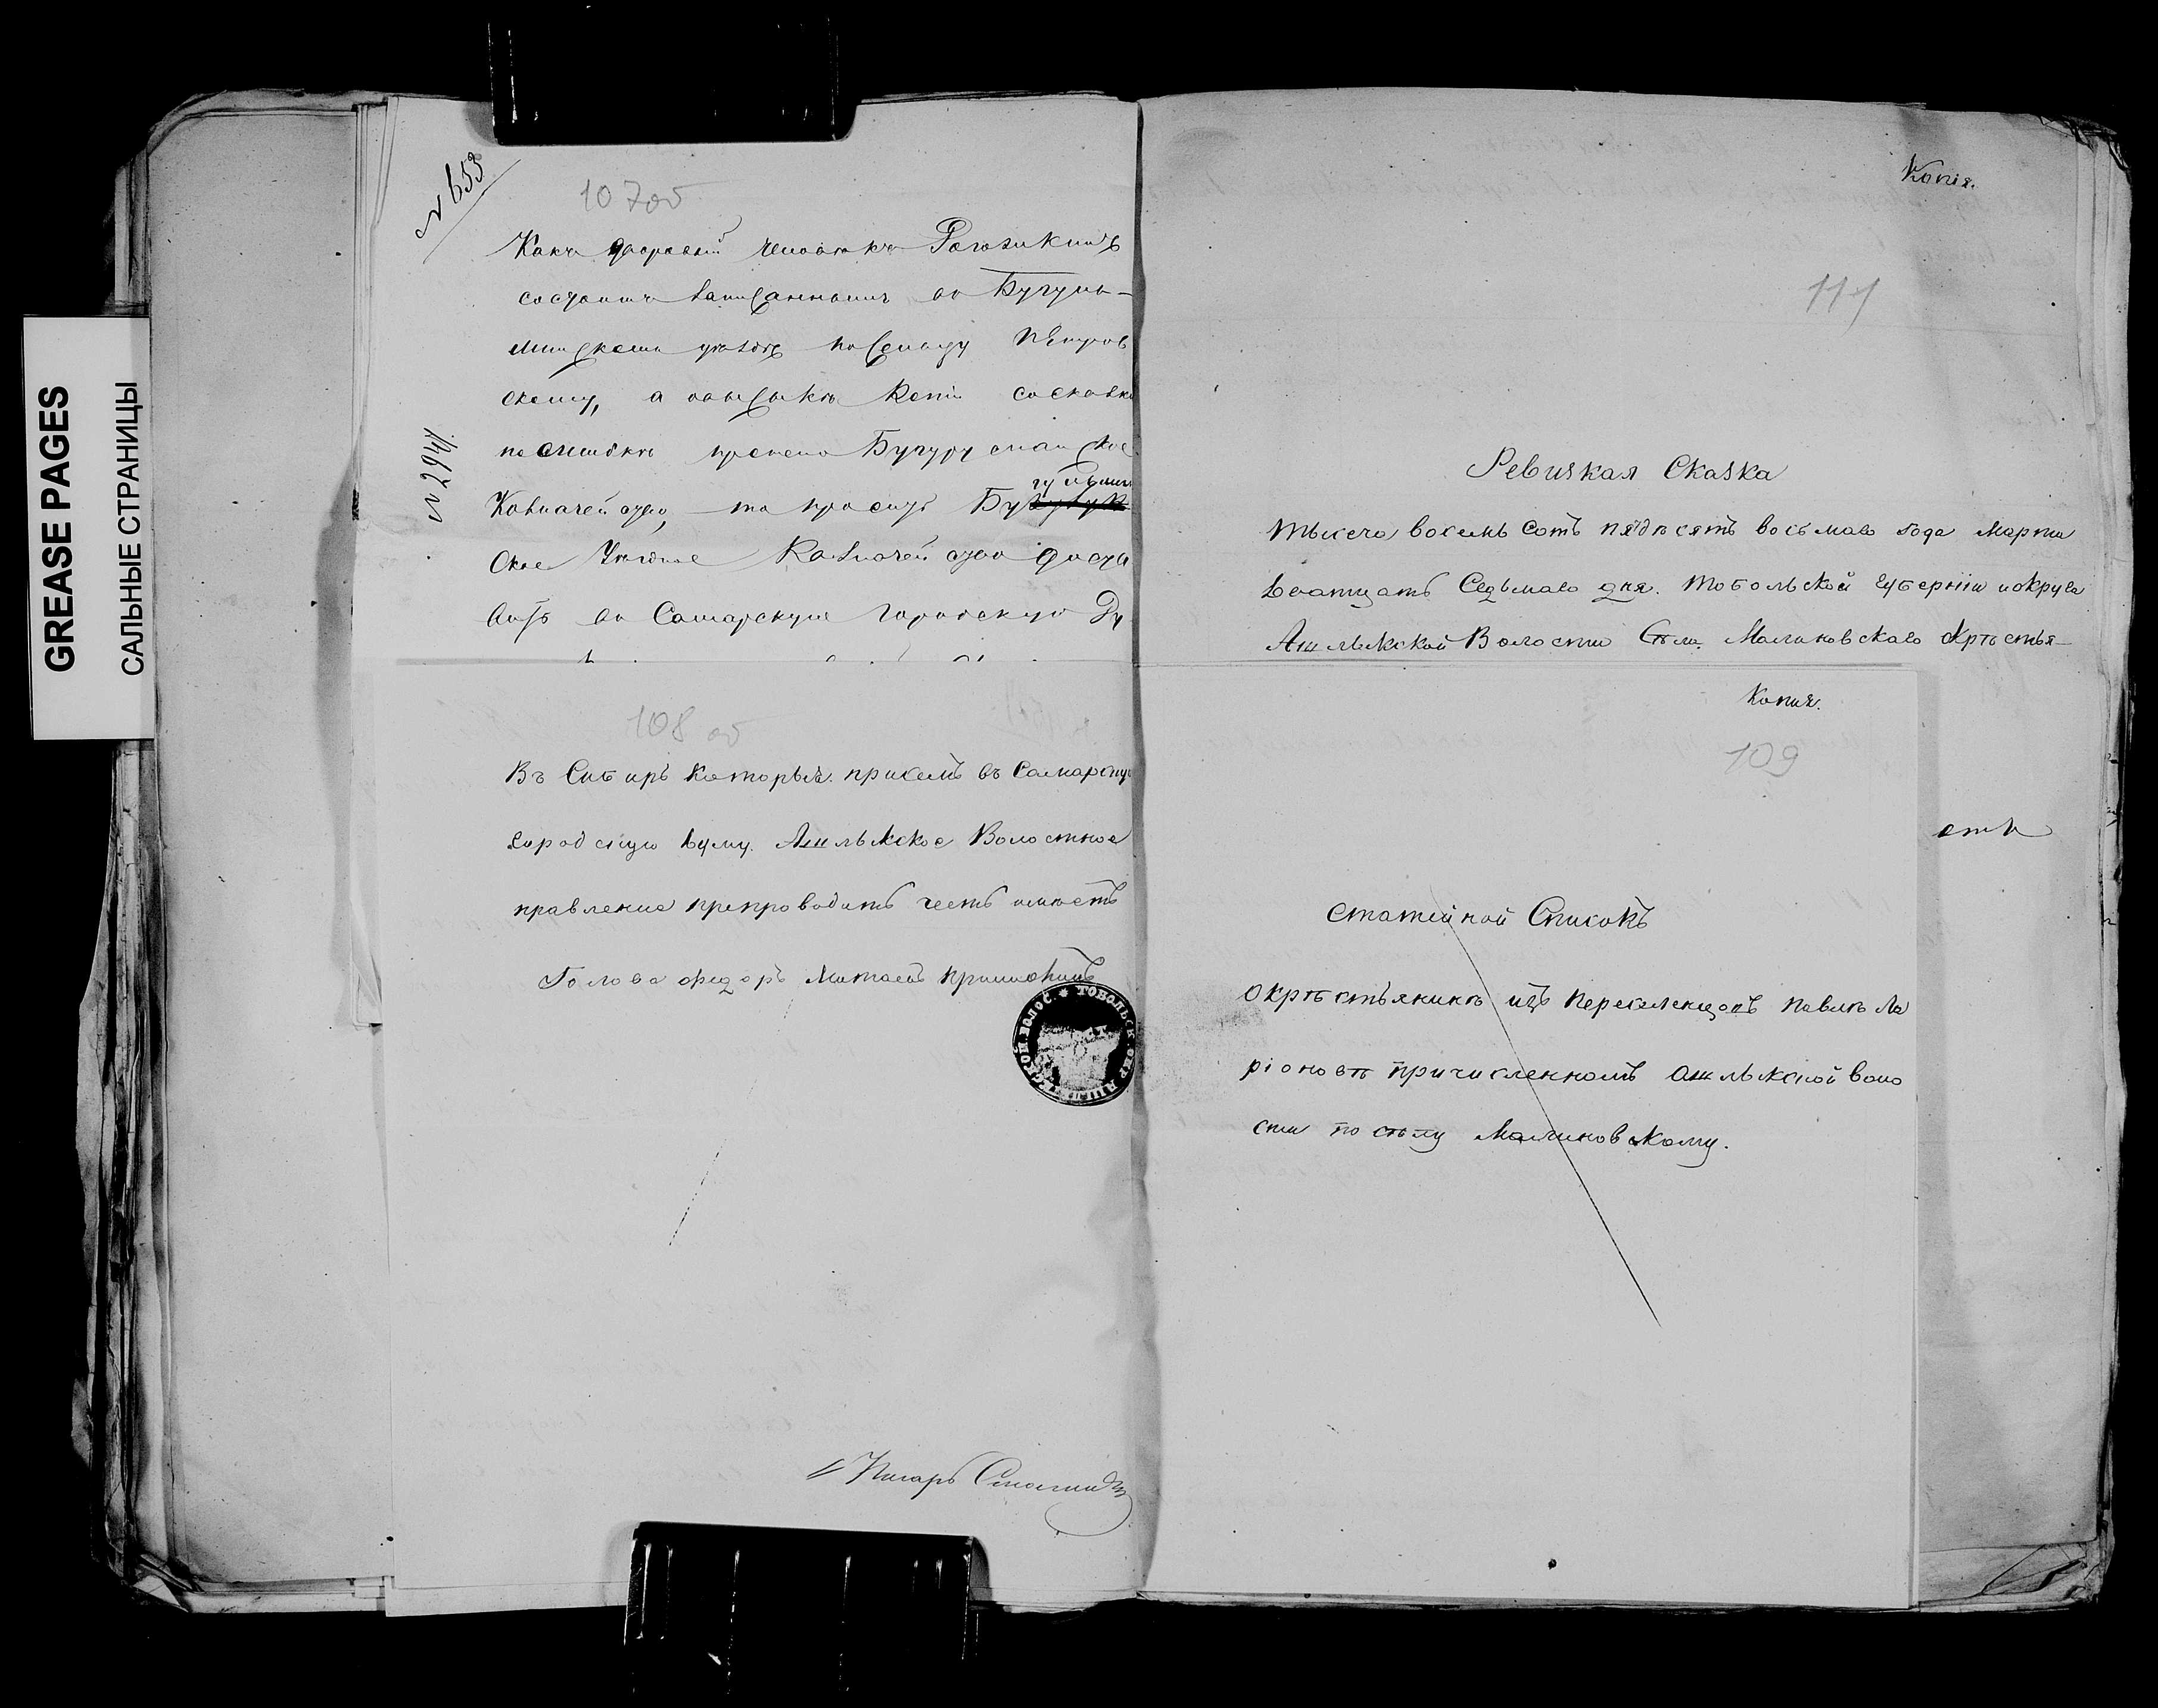 GREASE PAGES
САЛЬНЫЕ СТРАНИЦЫ
№ 653
107об
Какъ дворовый человѣкъ Рогозикинъ
состоитъ записаннымъ въ Бугуль-
минскомъ уѣздѣ по сельцу Петров
скому, а
№ 2944.
по ошибкѣ Бугурусланское
Казначейство, то проситъ Бугульмин
ское Уѣздное Казначейство доста
вить въ Самарскую Городскую Ду
108 об
Въ Сибирь которыя. въ Самарскую
городскую думу. Ашлыкское Волостное
правление препроводить честь имѣетъ
Голова Федоръ
ТОБОЛЬСК ОКР
ВОЛОС.
Писарь
Копія.
111
Ревизкая Сказка
тысеча восемь сотъ пядѣсятъ восьмаго года марта
дватцать Седьмаго дня. Тобольской губерніи иокруга
Ашлыкской Волости Сѣла. Малиновскаго Окрѣстья-
Копия.
109
сть
Статейной Списокъ
Окрѣстьянинѣ изъ переселенцовъ Павлѣ Ла
ріоновѣ причисленномъ Ашлыкской воло
сти по сѣлу Малиновскому.